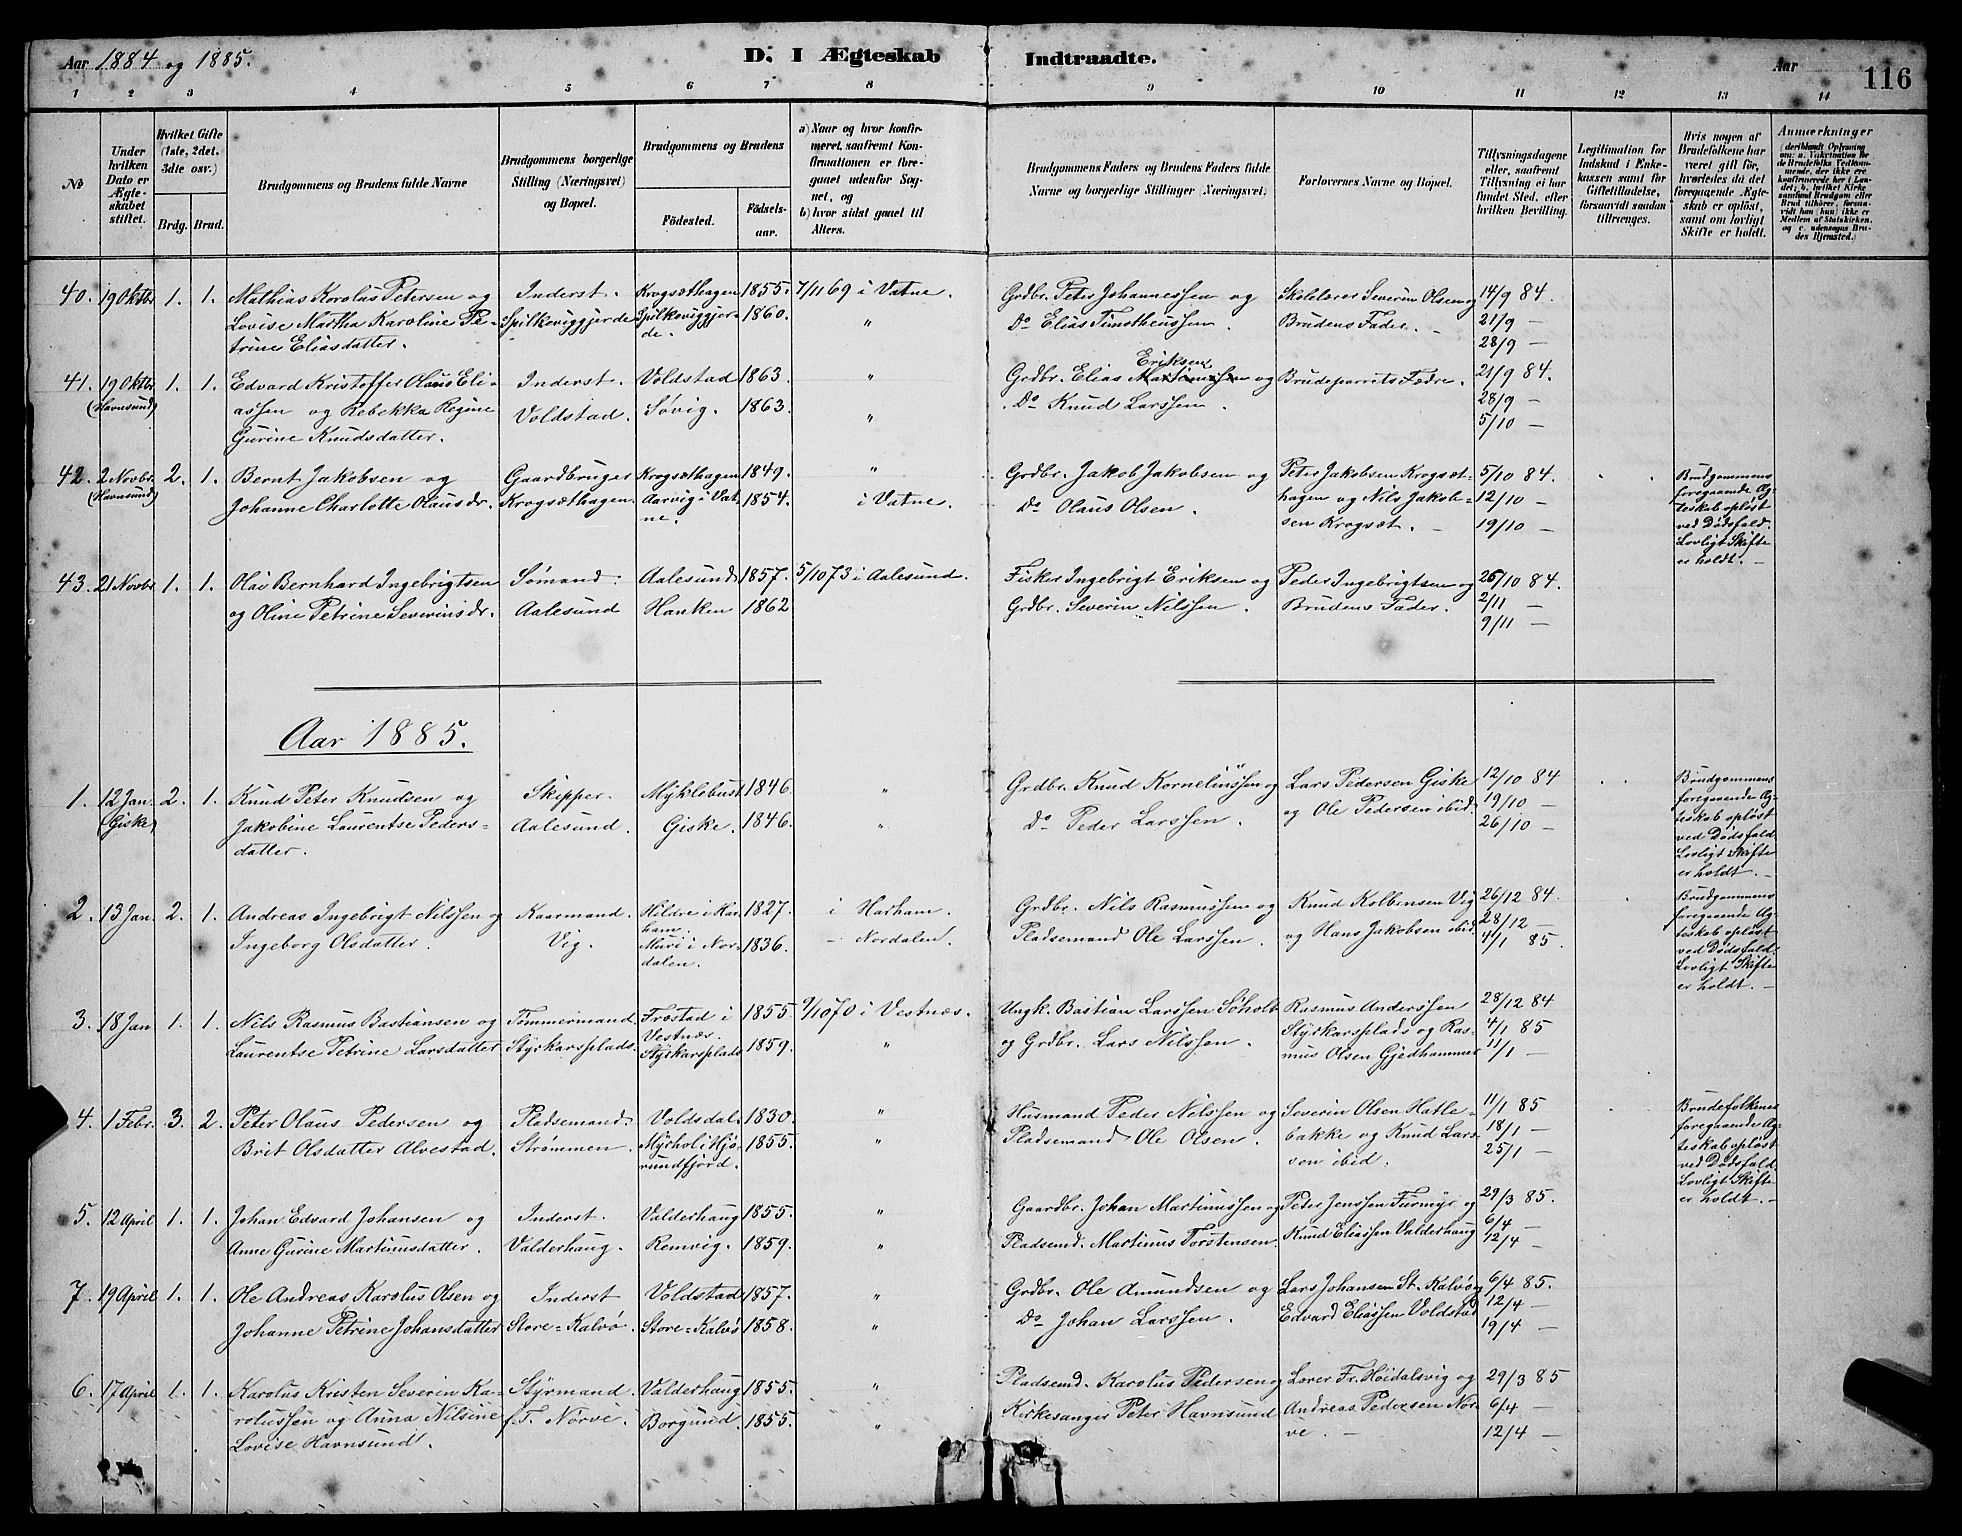 Aar 1884 og 1885.
D. I Ægteskab Indtraadte.
Aar
116
1 2 3 4 5 6 7 8 9 10 11 12 13 14
No
Under hvilken Dato er Ægteskabet stiftet.
Hvilket Gifte (1ste, 2det, 3dte osv.)
Brdg. Brud.
Brudgommens og Brudens fulde Navne
Brudgommens borgerlige Stilling (Næringsvei) og Bopæl.
Brudgommens og Brudens
Födested.
Födselsaar.
a) Naar og hvor konfirmeret, saafremt Konfirmationen er foregaaet udenfor Sognet, og
b) hvor sidst gaaet til Alters.
Brudgommens Faders og Brudens Faders fulde Navne og borgerlige Stillinger (Næringsvei).
Forlovernes Navne og Bopæl.
Tillysningsdagene eller, saafremt Tillysning ei har fundet Sted, efter hvilken Bevilling.
Legitimation for Indskud i Enkekassen samt for Giftetilladelse, forsaavidt saadan tiltrænges.
Hvis nogen af Brudefolkene har været gift för, hvorledes da det foregaaende Ægteskab er oplöst, samt om lovligt Skifte er holdt.
Anmærkninger
40. 19 Oktbr 1. 1. Mathias Karolus Petersen og
Lovise Martha Karoline Pe-
trine Eliasdatter.
Inderst.
Spilkeviggjerde
Krogsæthagen 1855.
Spilkeviggjer-
de. 1860.
7/11 69 i Vatne.
"
Grdbr. Peter Johannessen og
Do Elias Timotheussen.
Skolelærer Severin Olsen og
Brudens Fader. –
14/9 84.
21/9 –
28/9 –
41. 19 Oktbr (Havnsund) 1. 1. Edvard Kristoffer Olaus Eli-
assen og Rebekka Regine
Gurine Knudsdatter.
Inderst.
Voldstad.
Voldstad 1863.
Søvig. 1863.
"
"
Eriksen
Grdbr. Elias Martinussen og
Do Knud Larssen.
Brudeparrets Fædre.
21/9 84.
28/9 –
5/10 –
42. 2 Novbr. (Havnsund) 2. 1. Bernt Jakobsen og
Johanne Charlotte Olausdr.
Gaardbruger
Krogsæthagen.
Krogsæthagen 1849.
Aarvig i Vat-
ne. 1854.
"
i Vatne.
Grdbr. Jakob Jakobsen og
Do Olaus Olsen.
Peter Jakobsen Krogsæt-
hagen og Nils Jakob-
sen Krogsæt. –
5/10 84.
12/10 –
19/10 –
Brudgommens
foregaaende Æg-
teskab opløst
ved Dødsfald.
Lovligt Skifte
er holdt. –
43. 21 Novbr 1. 1. Olav Bernhard Ingebrigtsen
og Oline Petrine Severinsdr.
Sømand.
Aalesund
Aalesund 1857.
Hanken 1862
5/10 73 i Aalesund.
Fisker Ingebrigt Eriksen og
Grdbr. Severin Nilssen.
Peder Ingebrigtsen og
Brudens Fader.
26/10 84.
2/11 –
9/11 –
Aar 1885.
1. 12 Jan. (Giske) 2. 1. Knud Peter Knudsen og
Jakobine Laurentse Peders-
datter.
Skipper.
Aalesund.
Myklebust 1846.
Giske. 1846.
"
"
Grdbr. Knud Korneliussen og
Do Peder Larssen.
Lars Pedersen Giske
og Ole Pedersen ibid.
12/10 84
19/10 –
26/10 –
Brudgommens
foregaaende Æg-
teskab opløst
ved Dødsfald
Lovligt Skifte
er holdt. –
2. 13 Jan. 2. 1. Andreas Ingebrigt Nilssen og
Ingeborg Olsdatter.
Kaarmand.
Vig.
Hildre i Har-
ham. 1827.
Muri i Nor-
dalen. 1836.
i Harham.
– Nordalen.
Grdbr. Nils Rasmussen og
Pladsemand Ole Larssen.
Knud Kolbensen Vig
og Hans Jakobsen ibid.
26/12 84.
28/12 –
4/1 85.
Brudgommens
foregaaende Æg-
teskab opløst
ved Dødsfald.
Lovligt Skifte
er holdt. –
3. 18 Jan 1. 1. Nils Rasmus Bastiansen og
Laurentse Petrine Larsdatter
Tømmermand.
Styrkarsplads.
Frostad i
Vestnæs. 1855.
Styrkarsplads 1859.
9/10 70 i Vestnæs.
"
Ungk. Bastian Larssen Søholt
og Grdbr. Lars Nilssen.
Rasmus Anderssen
Styrkarsplads og Ras-
mus Olsen Gjedhammer
28/12 84
4/1 85
11/1 –
4. 1 Febr. 3. 2. Peter Olaus Pedersen og
Brit Olsdatter Alvestad.
Pladsemand
Strømmen.
Voldsdal. 1830.
Myrhol i Hjø-
rundfjord. 1855.
"
"
Husmand Peder Nilssen og
Pladsemand Ole Olsen.
Severin Olsen Hatle-
bakke og Knud Lars-
sen ibid.
11/1 85
18/1 –
25/1 –
Brudefolkenes
foregaaende Æg-
teskab opløst
ved Dødsfald.
Lovligt Skifte
er holdt. –
5. 12 April 1. 1. Johan Edvard Johansen og
Anne Gurine Martinusdatter.
Inderst.
Valderhaug.
Valderhaug 1855.
Remvig. 1859.
"
"
Gaardbr. Johan Martinussen og
Pladsemd. Martinus Torstensen.
Peter Jenssen Furmyr og
Knud Eliassen Valderhaug
29/3 85.
6/4 –
12/4 –
7. 19 April 1. 1. Ole Andreas Karolus Olsen og
Johanne Petrine Johansdatter
Inderst
Store=Kalvø.
Voldstad 1857.
Store=Kalvø 1858.
"
"
Grdbr. Ole Amundsen og
Do Johan Larssen.
Lars Johansen St. Kalvø og
Edvard Eliassen Voldstad
6/4 85.
12/4 –
19/4 –
6. 17 April 1. 1. Karolus Kristen Severin Ka-
rolussen og Anna Nilsine
Lovise Havnsund.
Styrmand
f.T. Nørve.
Valderhaug 1855.
Borgund. 1855.
"
"
Pladsemd. Karolus Pedersen og
Kirkesanger Peter Havnsund
Lærer Fr. Høidalsvig og
Andreas Pedersen Nør-
ve. –
29/3 85
6/4 –
12/4 –